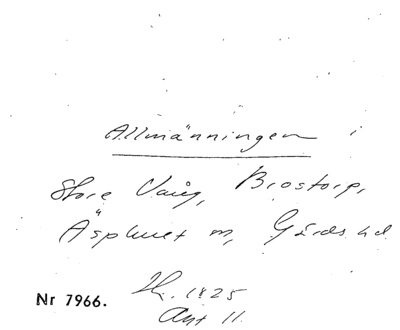 Allmänningen i
Store Vång, Brostorp,
Äsphult m, Gärds hd
Nr 7966.
1825
Akt 11.